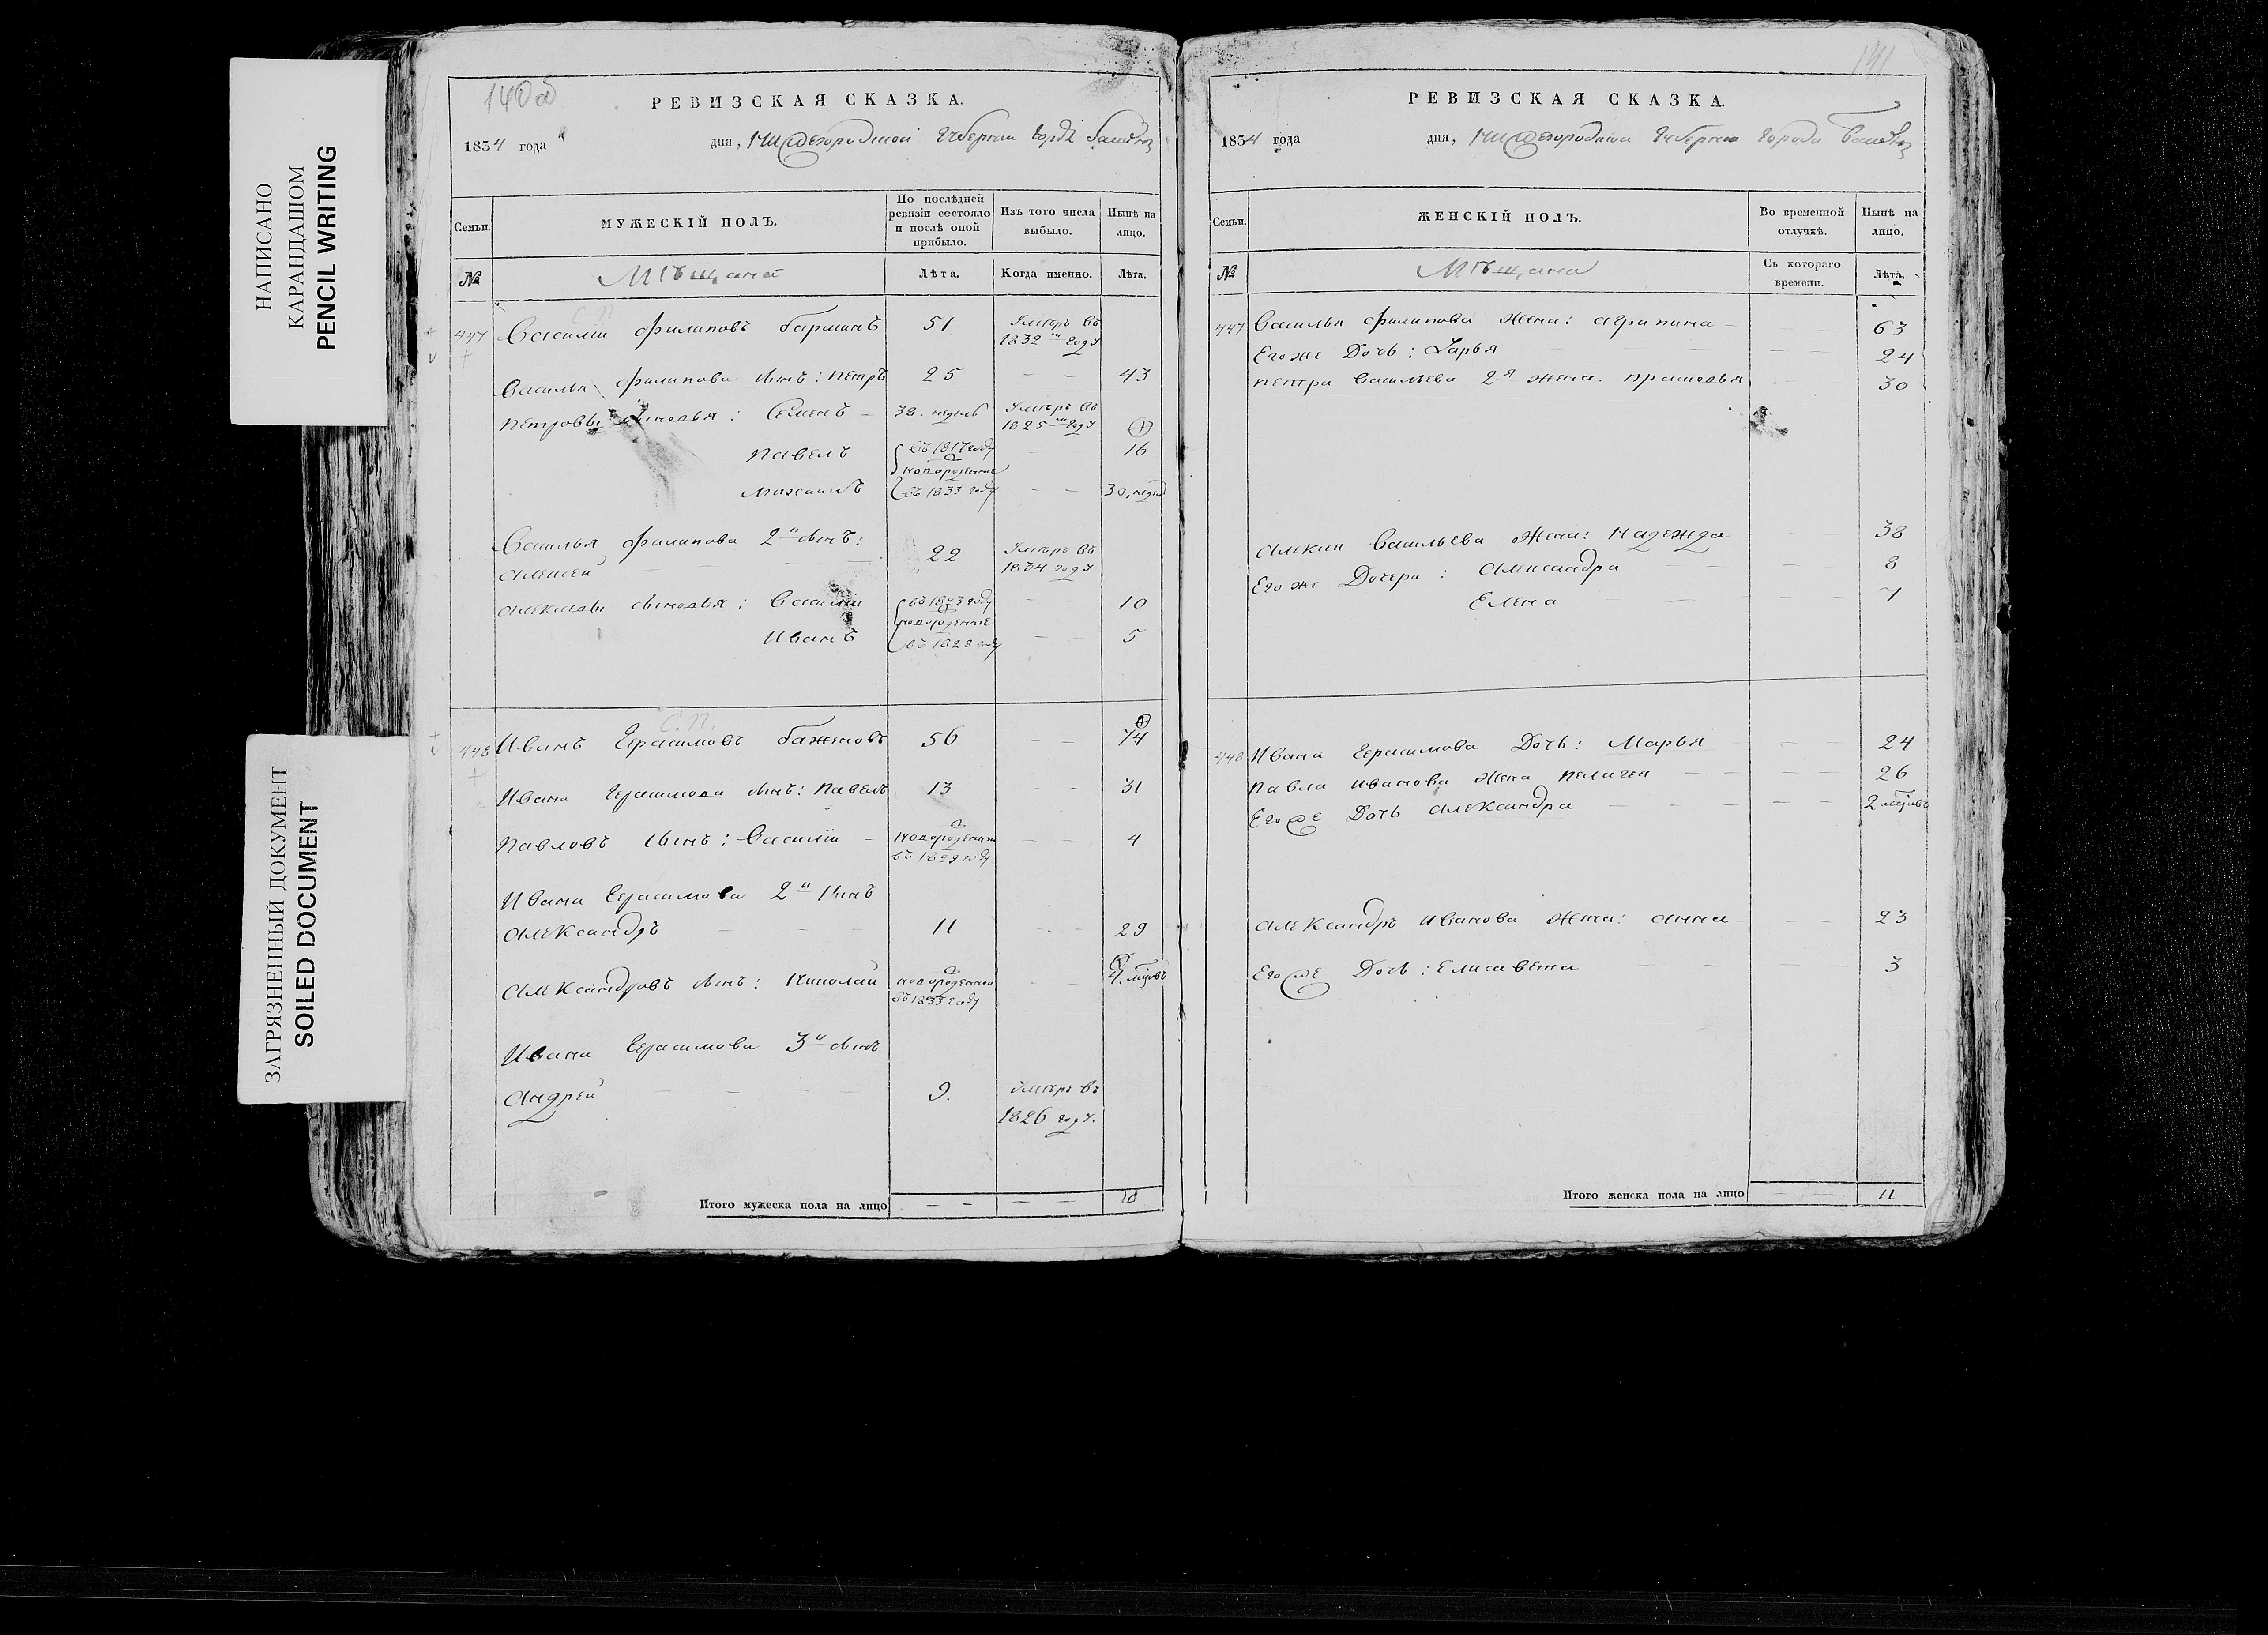 НАПИСАНО
КАРАНДАШОМ
PENCIL WRITING
ЗАГРЯЗНЕННЫЙ ДОКУМЕНТ
SOILED DOCUMENT
140 об
РЕВИЗСКАЯ СКАЗКА.
1834 года дня, Нижегородской Губернии
Семьи. МУЖЕСКІЙ ПОЛЪ. По послѣдней ревизіи состояло и послѣ оной прибыло. Изъ того числа выбыло. Нынѣ на лицо.
№ Мѣщаней Лѣта. Когда именно. Лѣта.
447 Василий Филиповъ 51 Умѣръ въ 1832 м году
Василья Филипова сынъ: Петръ 25 — — 43
Петровы сыновья: Семенъ — 38. недель Умѣръ въ 1825 м году
Павелъ въ 1817 году — — 16
новорожденные
Михаилъ въ 1833 году — — 30. недель
Василья Филипова 2й сынъ:
Алексей — — — 22 Умѣръ въ 1834 году
Алексеевы сыновья: Василий въ 1823 году — — 10
новорожденные
Иванъ въ 1828 году — — 5
С.П.
448 Иванъ Герасимовъ Баженовъ 56 — — 74
Ивана Герасимова сынъ: Павелъ 13 — — 31
Павловъ сынъ: Василий — новорожденный въ 1829 году — — 4
Ивана Герасимова 2й сынъ
Александръ — — — 11 — — 29
Александровъ сынъ: Николай новорожденной въ 1833 году — — 4. мѣсяцовъ
Ивана Герасимова 3й сынъ
Андрей — — — 9. Умѣръ въ
1826 году.
Итого мужеска пола на лицо — — — — 10
141
РЕВИЗСКАЯ СКАЗКА.
1834 года дня, Нижегородской Губернии Города
Семьи. ЖЕНСКІЙ ПОЛЪ. Во временной отлучкѣ. Нынѣ на лицо.
№ Мѣщанна Съ котораго времени. Лѣта.
447 Василья Филипова Жена: Агрипина — — — 63
Его же Дочь: Дарья — — 24
Петра Васильева 2я жена. 30
Алексия Васильева Жена: Надежда — — 38
Его же Дочери: Александра — — 8
Елена — — — 7
448 Ивана Герасимова Дочь: Марья — — 24
Павла Иванова Жена Пелагея — — 26
Его же Дочь Александра — — 2 мѣсяцовъ
Александръ Иванова Жена: Анна — — 23
Его же Дочь: Елисавета — — 3
Итого женска пола на лицо — — 11